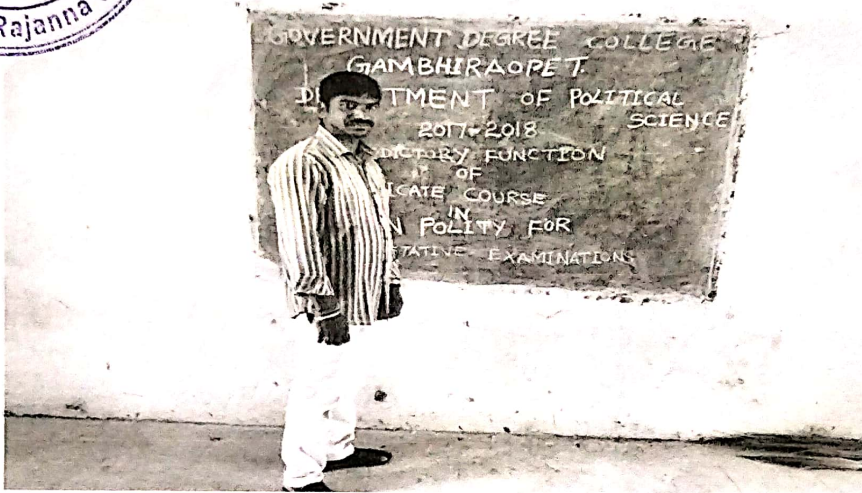 Rajanna
GOVERNMENT DEGREE COLLEGE
GAMBHIRAOPET.
D TMENT OF POLITICAL
SCIENCE
2017-2018
DICTORY FUNCTION
OF
ICATE COURSE
IN
N POLITY FOR
TATIVE EXAMINATIONS